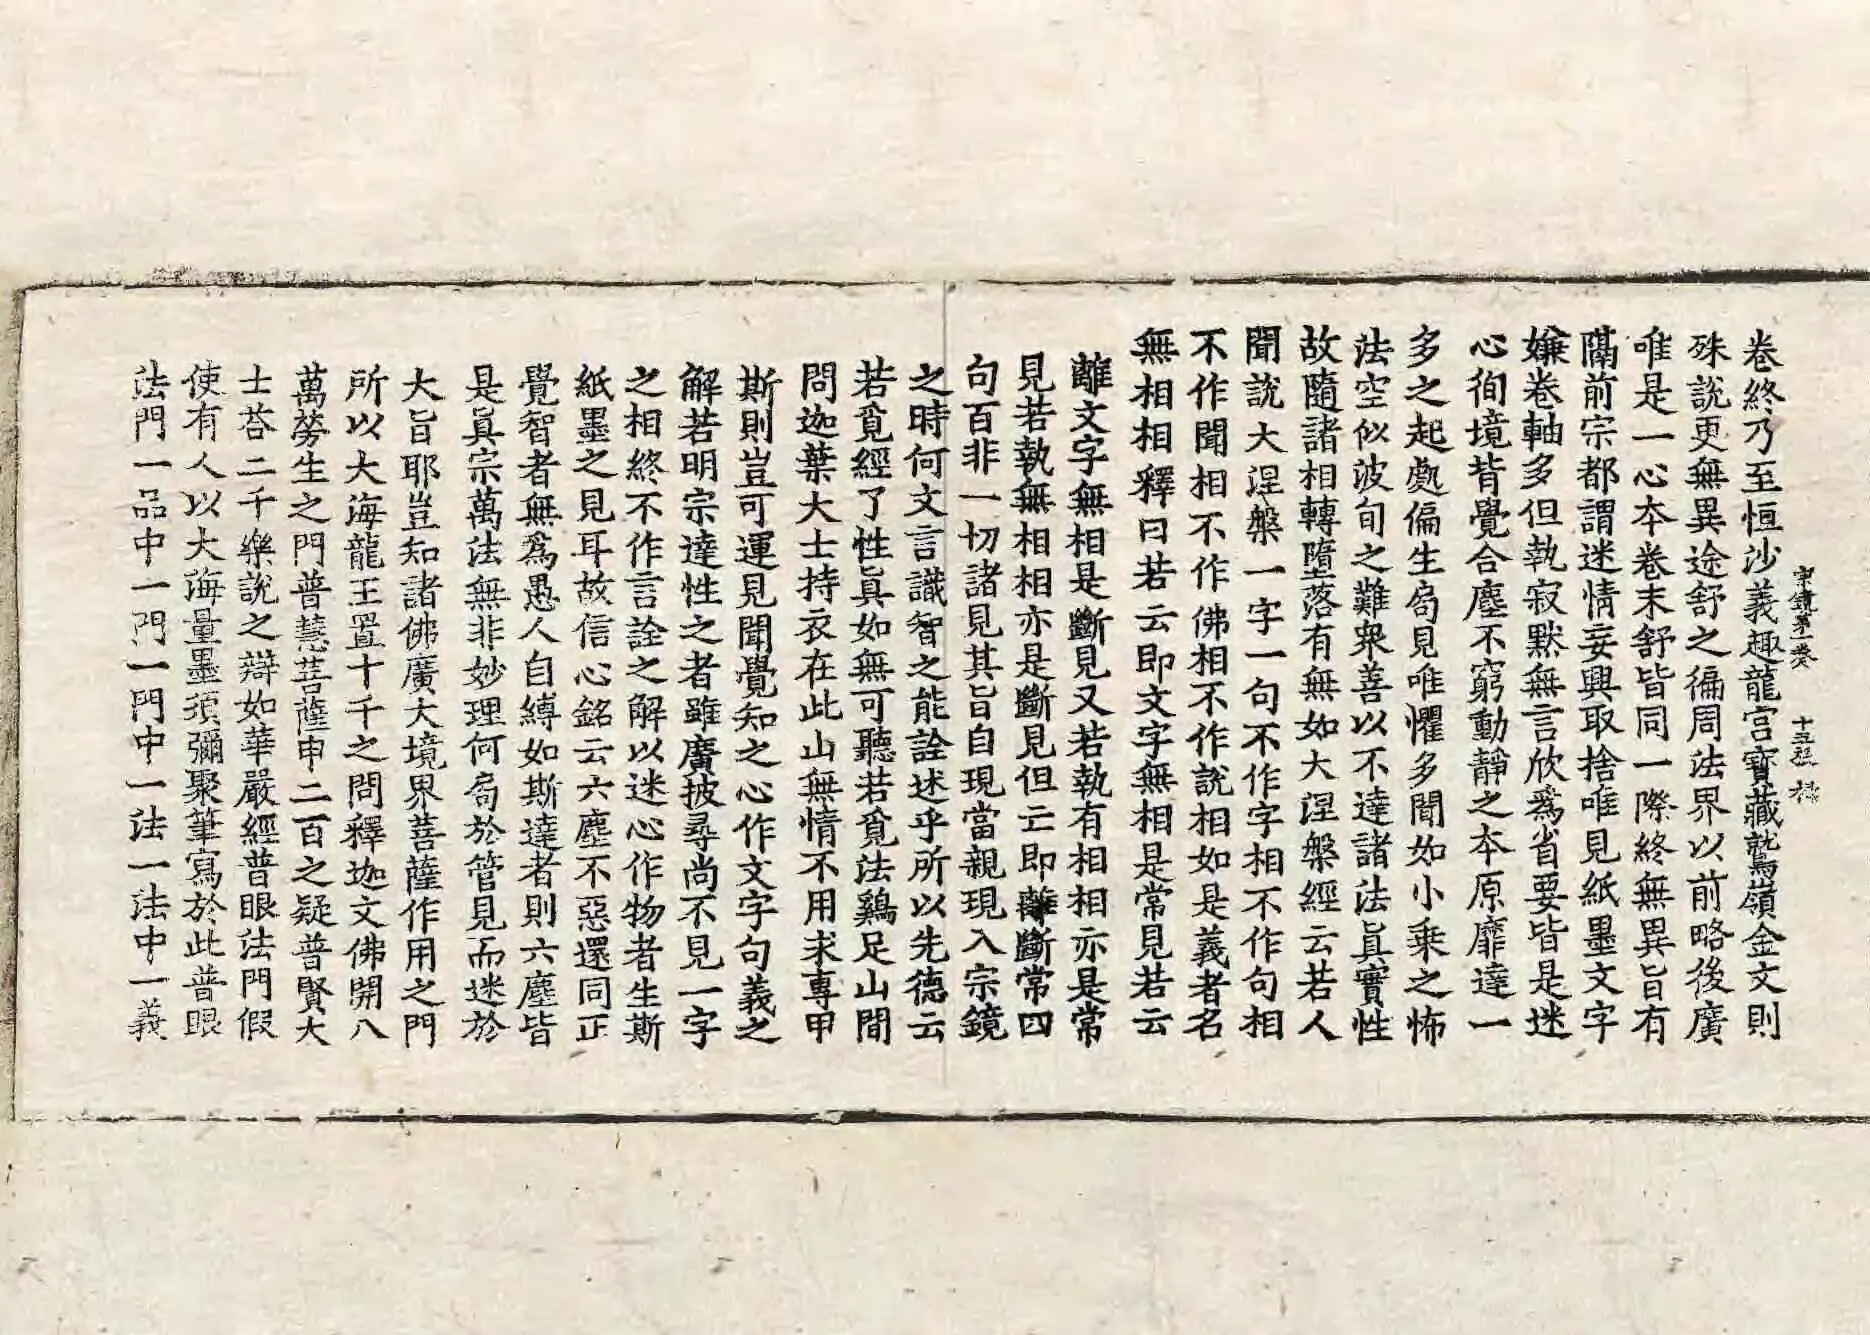 卷終乃至恒沙義趣龍宮寶藏鷲嶺金文則
殊說更無異途舒之徧周法界以前略後廣
唯是一心夲卷末舒皆同一際終無異旨有
隔前宗都謂迷情妄興取捨唯見紙墨文字
嫌卷軸多但執寂默無言欣爲省要皆是迷
心徇境背覺合塵不窮動靜之夲原靡達一
多之起處偏生局見唯懼多聞如小乗之怖
法空似波旬之難衆善以不達諸法眞實性
故隨諸相轉墮落有無如大涅槃經云若人
聞說大涅槃一字一句不作字相不作句相
不作聞相不作佛相不作說相如是義者名
無相相釋曰若云即文字無相是常見若云
離文字無相是斷見又若執有相相亦是常
見若執無相相亦是斷見但亡即離斷常四
句百非一切諸見其旨自現當親現入宗鏡
之時何文言識智之能詮述乎所以先德云
若覓經了性眞如無可聽若覓法鷄足山間
問迦葉大士持衣在此山無情不用求專甲
斯則豈可運見聞覺知之心作文字句義之
解若明宗達性之者雖廣披尋尚不見一字
之相終不作言詮之解以迷心作物者生斯
紙墨之見耳故信心銘云六塵不惡還同正
覺智者無爲愚人自縛如斯達者則六塵皆
是眞宗萬法無非妙理何局於管見而迷於
大旨耶豈知諸佛廣大境界菩薩作用之門
所以大海龍王置十千之問釋迦文佛開八
萬勞生之門普慧菩薩申二百之疑普賢大
士荅二千樂說之辯如華嚴經普眼法門假
使有人以大海量墨須彌聚筆寫於此普眼
法門一品中一門一門中一法一法中一義
宗鏡第一卷 十五張